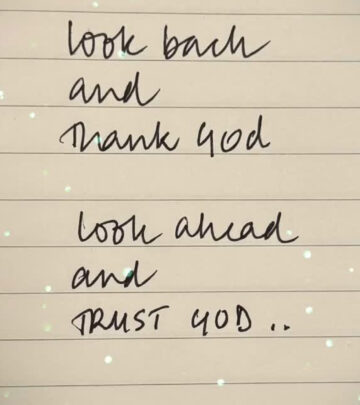 look back
and
Thank God
look ahead
and
TRUST GOD ..